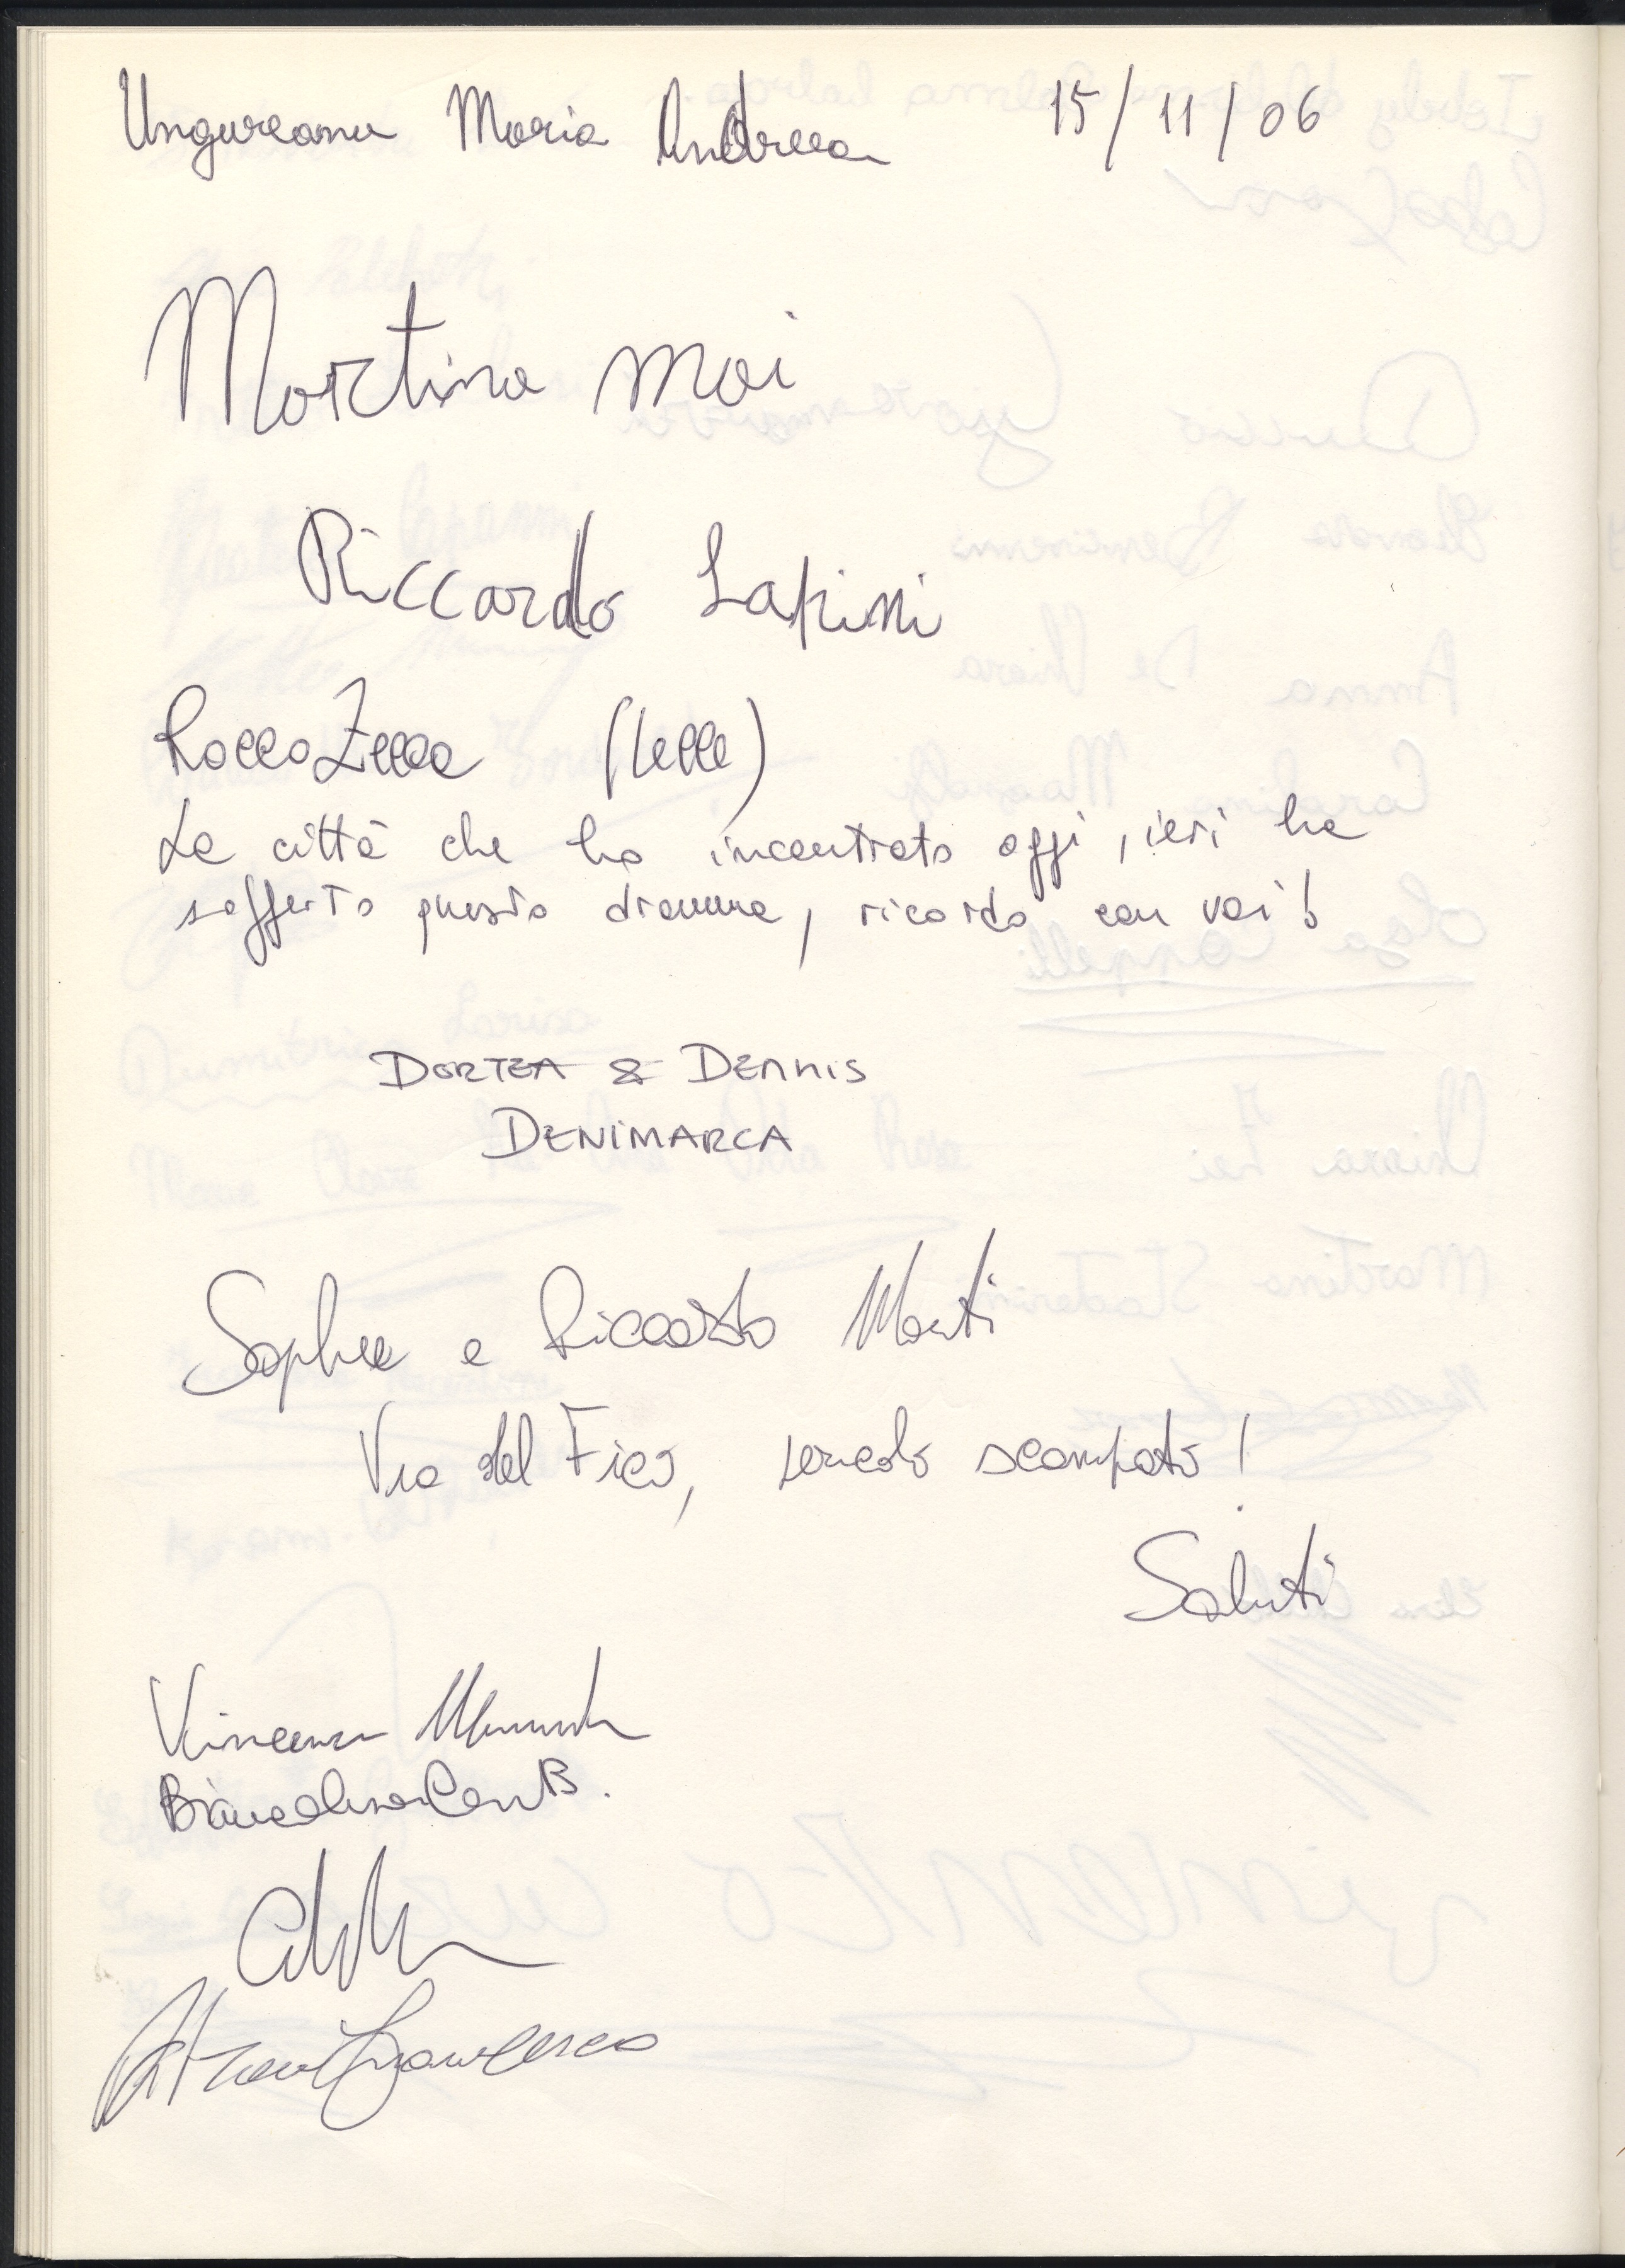 Ungureanu Maria Andreea 15/11/06
Martina Mai
Riccardo Lapini
Rocco Zecca (Lecce)
La città che ho incontrato oggi, ieri ha
sofferto questo dramma, ricordo con voi!
DORTEA & DENNIS
DENIMARCA
Sophie e Riccardo Monti
Via del Fico, pericolo scampato!
Saluti
Vincenzo
Francesco